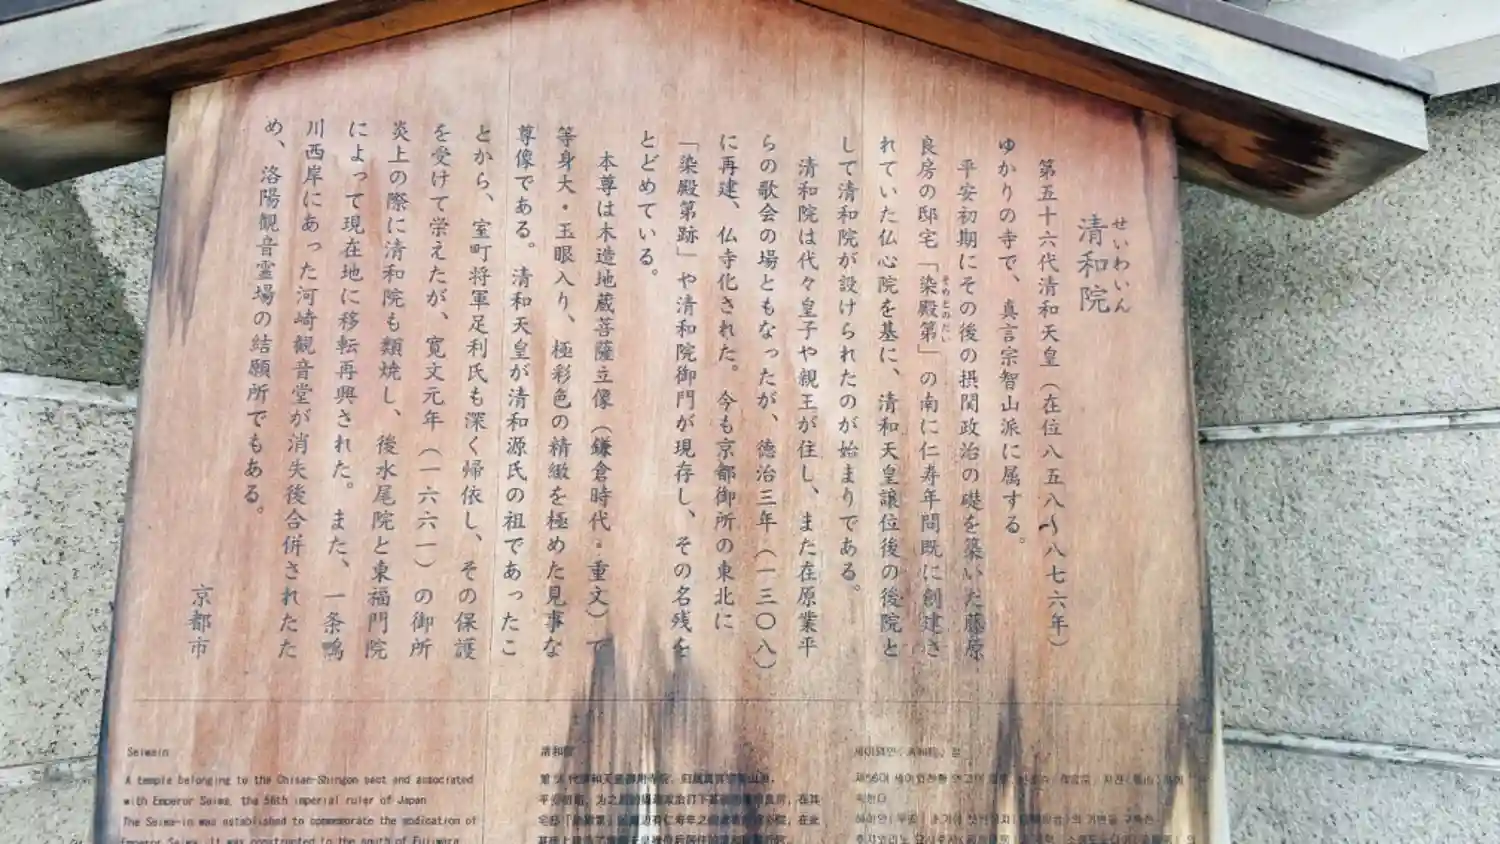 せいわいん
清和院
第五十六代清和天皇（在位八五八〜八七六年）
ゆかりの寺で、真言宗智山派に属する。
平安初期にその後の摂関政治の礎を築いた藤原
良房の邸宅「染殿第」の南に仁寿年間既に創建さ
そめどのだい
れていた仏心院を基に、清和天皇譲位後の後院と
して清和院が設けられたのが始まりである。
清和院は代々皇子や親王が住し、また在原業平
らの歌会の場ともなったが、徳治三年（一三〇八）
に再建、仏寺化された。今も京都御所の東北に
「染殿第跡」や清和院御門が現存し、その名残を
とどめている。
本尊は木造地蔵菩薩立像（鎌倉時代・重文）で
等身大・玉眼入り、極彩色の精緻を極めた見事な
尊像である。清和天皇が清和源氏の祖であったこ
とから、室町将軍足利氏も深く帰依し、その保護
を受けて栄えたが、寛文元年（一六六一）の御所
炎上の際に清和院も類焼し、後水尾院と東福門院
によって現在地に移転再興された。また、一条鴨
川西岸にあった河崎観音堂が消失後合併されたた
め、洛陽観音霊場の結願所でもある。
京都市
Seiwain
A temple belonging to the Chisan-Shingon sect and associated
with Emperor Seiwa, the 56th imperial ruler of Japan
The Seiwa-in was established to commemorate the abdication of
Emperor Seiwa. It was constructed to the south of Fujiwara
清和院